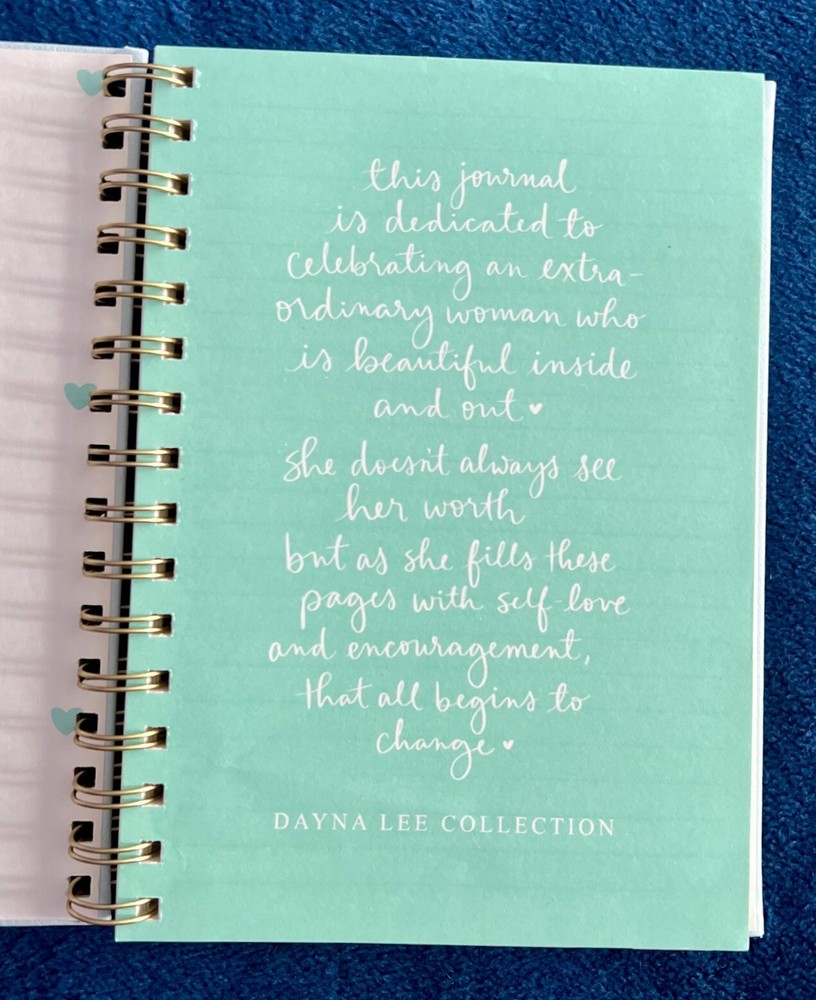 this journal
is dedicated to
celebrating an extra-
ordinary woman who
is beautiful inside
and out ♥
she doesn't always see
her worth
but as she fills these
pages with self-love
and encouragement,
that all begins to
change ♥
DAYNA LEE COLLECTION